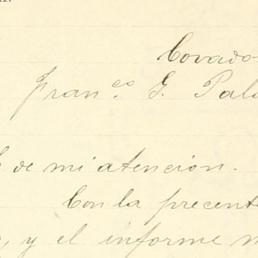 Covado
Fran.co G. Pala
de mi atencion.
Con la precent
y el informe m